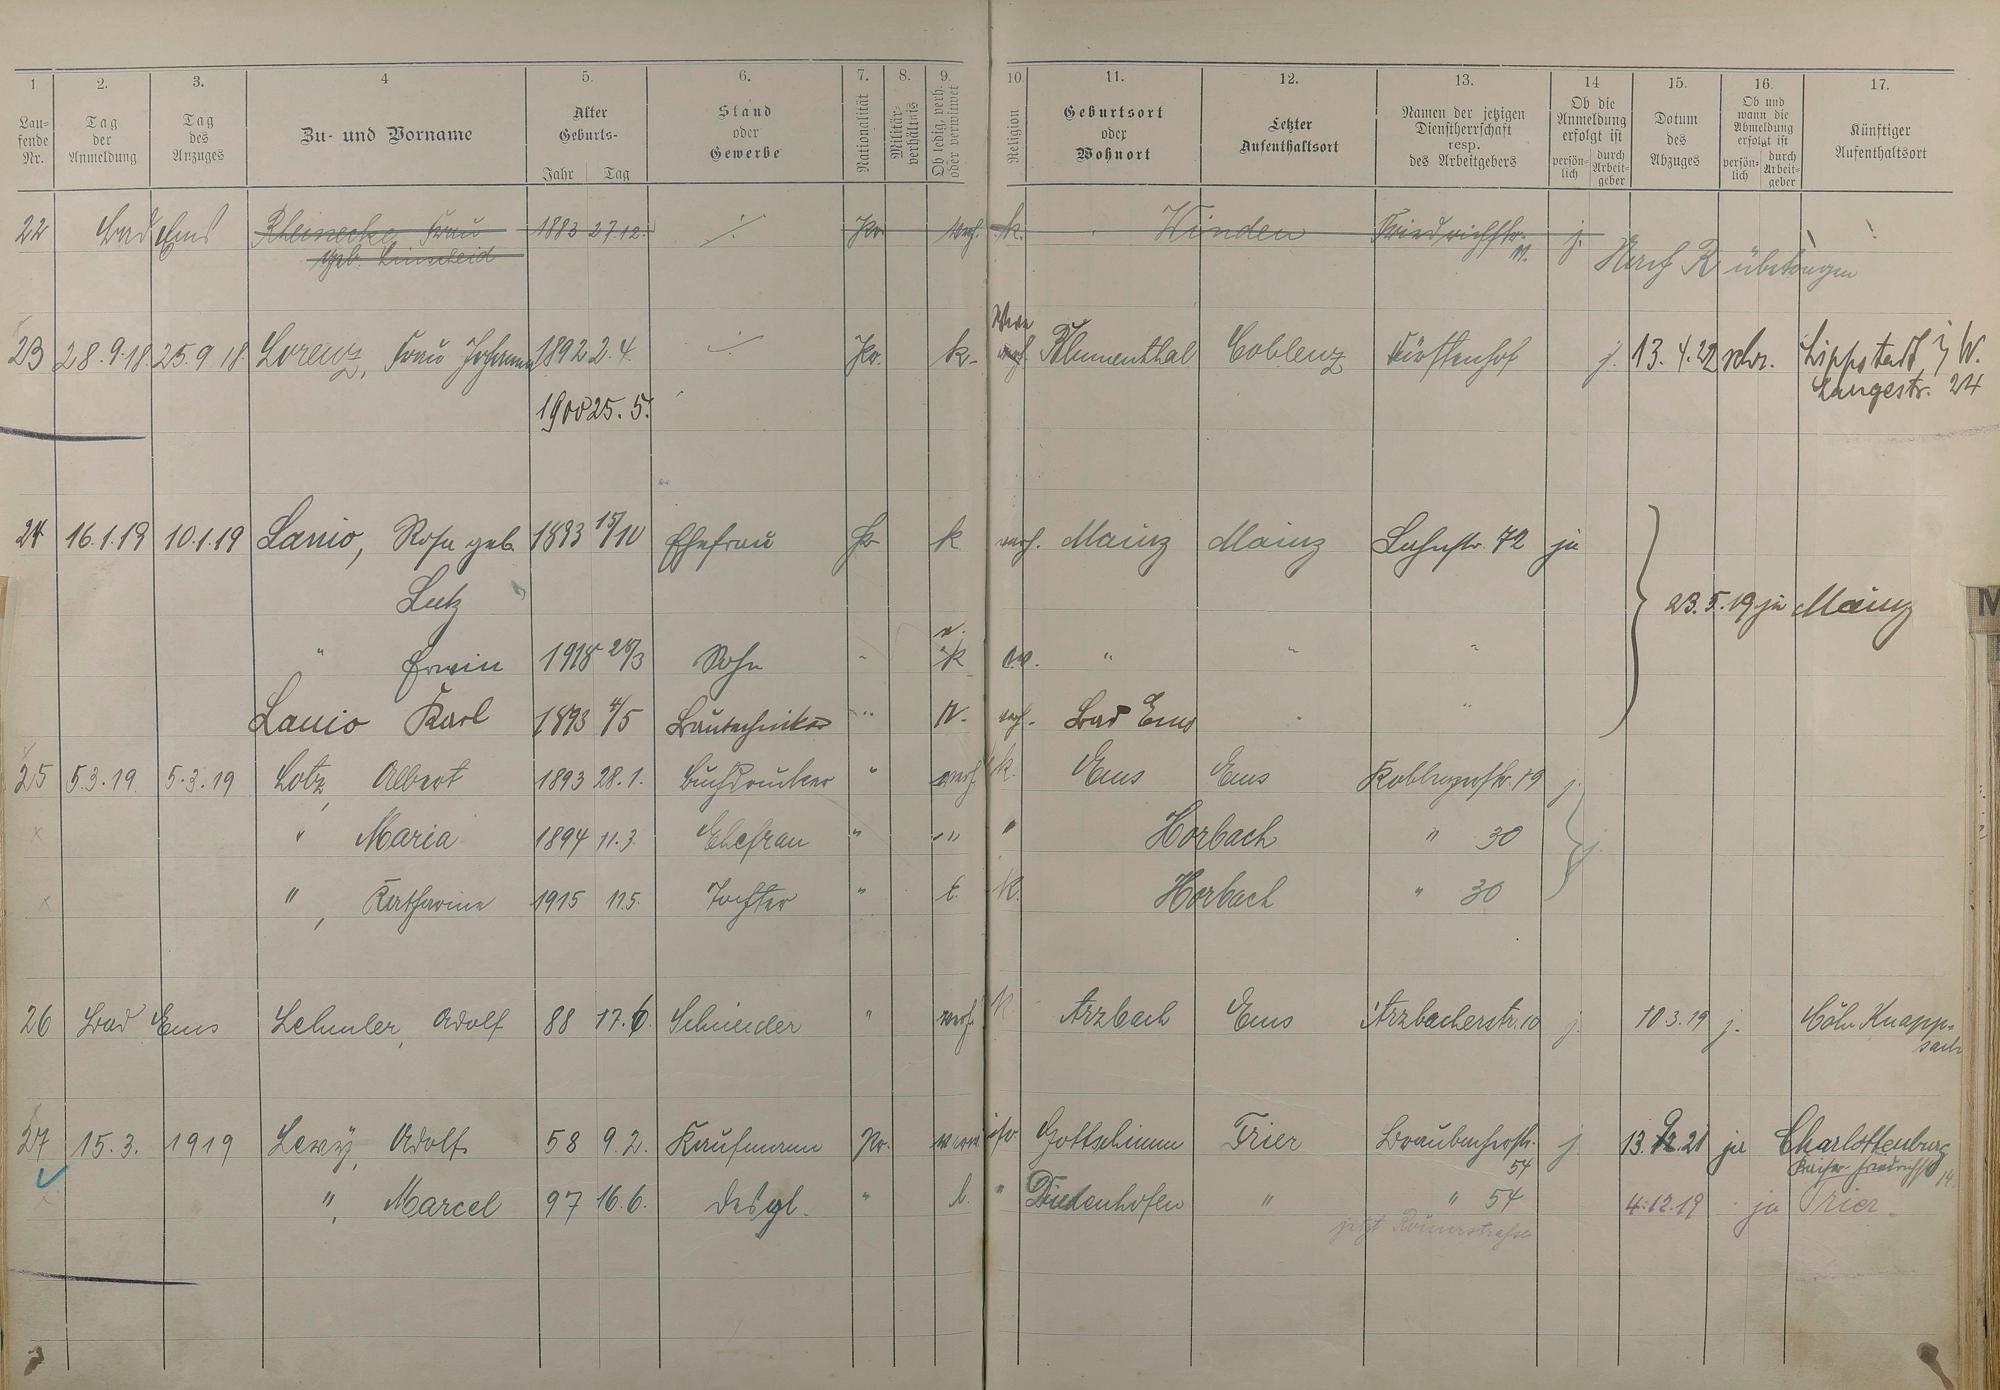 1 2. 3. 4 5. 6. 7. 8. 9. 10. 11. 12. 13. 14 15. 16. 17.
Lau-
fende
Nr.
Tag
der
Anmeldung
Tag
des
Anzuges
Zu- und Vorname
Alter
Geburts-
Jahr Tag
Stand
oder
Gewerbe
Nationalität
Militär-
verhältnis
Ob ledig, verh.
oder verwitwet
Religion
Geburtsort
oder
Wohnort
Letzter
Aufenthaltsort
Namen der jetzigen
Dienstherrschaft
resp.
des Arbeitgebers
Ob die
Anmeldung
erfolgt ist
persön-
lich
durch
Arbeit-
geber
Datum
des
Abzuges
Ob und
wann die
Abmeldung
erfolgt ist
persön-
lich
durch
Arbeit-
geber
Künftiger
Aufenthaltsort
22 Bad Ems Rheinecke Frau 1883 27.12. Pr. verh. k. Winden Friedrichstr. j.
geb. Linscheid Nach R übertragen
23 28.9.18. 25.9 18. Lorenz, Frau Johanna 1892 2.4. Pr. k. Blumenthal Coblenz Fürstenhof j. 13.4.22 Lippstadt i W.
1900 25.5. Langestr. 24
24 16.1.19 10.1.19 Lanio, Rosa geb. 1893 15/10 Ehefrau Pr k verh. Mainz Mainz Lahnstr. 72 ja
Lutz 23.5.19 ja Mainz
" Erwin 1918 28/3 Sohn " k ev. " " "
Lanio Karl 1893 4/5 Bautechniker " verh. Bad Ems " "
25 5.3.19. 5.3.19 Lotz, Albert 1893 28.1. Buchdrucker " verh. k. Ems Ems Koblenzerstr. 19 j.
" Maria 1894 11.3. Ehefrau " " " Horbach " 30 j.
" , Katharine 1915 11.5. Tochter " l. k. Horbach " 30
26 Bad Ems Lehmler, Adolf 88 17.6. Schneider " verh. k Arzbach Ems Arzbacherstr. 10 j. 10.3.19 j. Cöln Knapp-
sack
27 15.3. 1919 Levy, Adolf 58 9.2. Kaufmann Pr. isr Trier Braubacherstr. j 13. 21 ja Charlottenburg
54 Kaiser Friedrichstr 14
", Marcel 97 16.6. desgl. " l. " Diedenhofen " " 54 4.12.19 ja Trier.
jetzt Römerstrasse